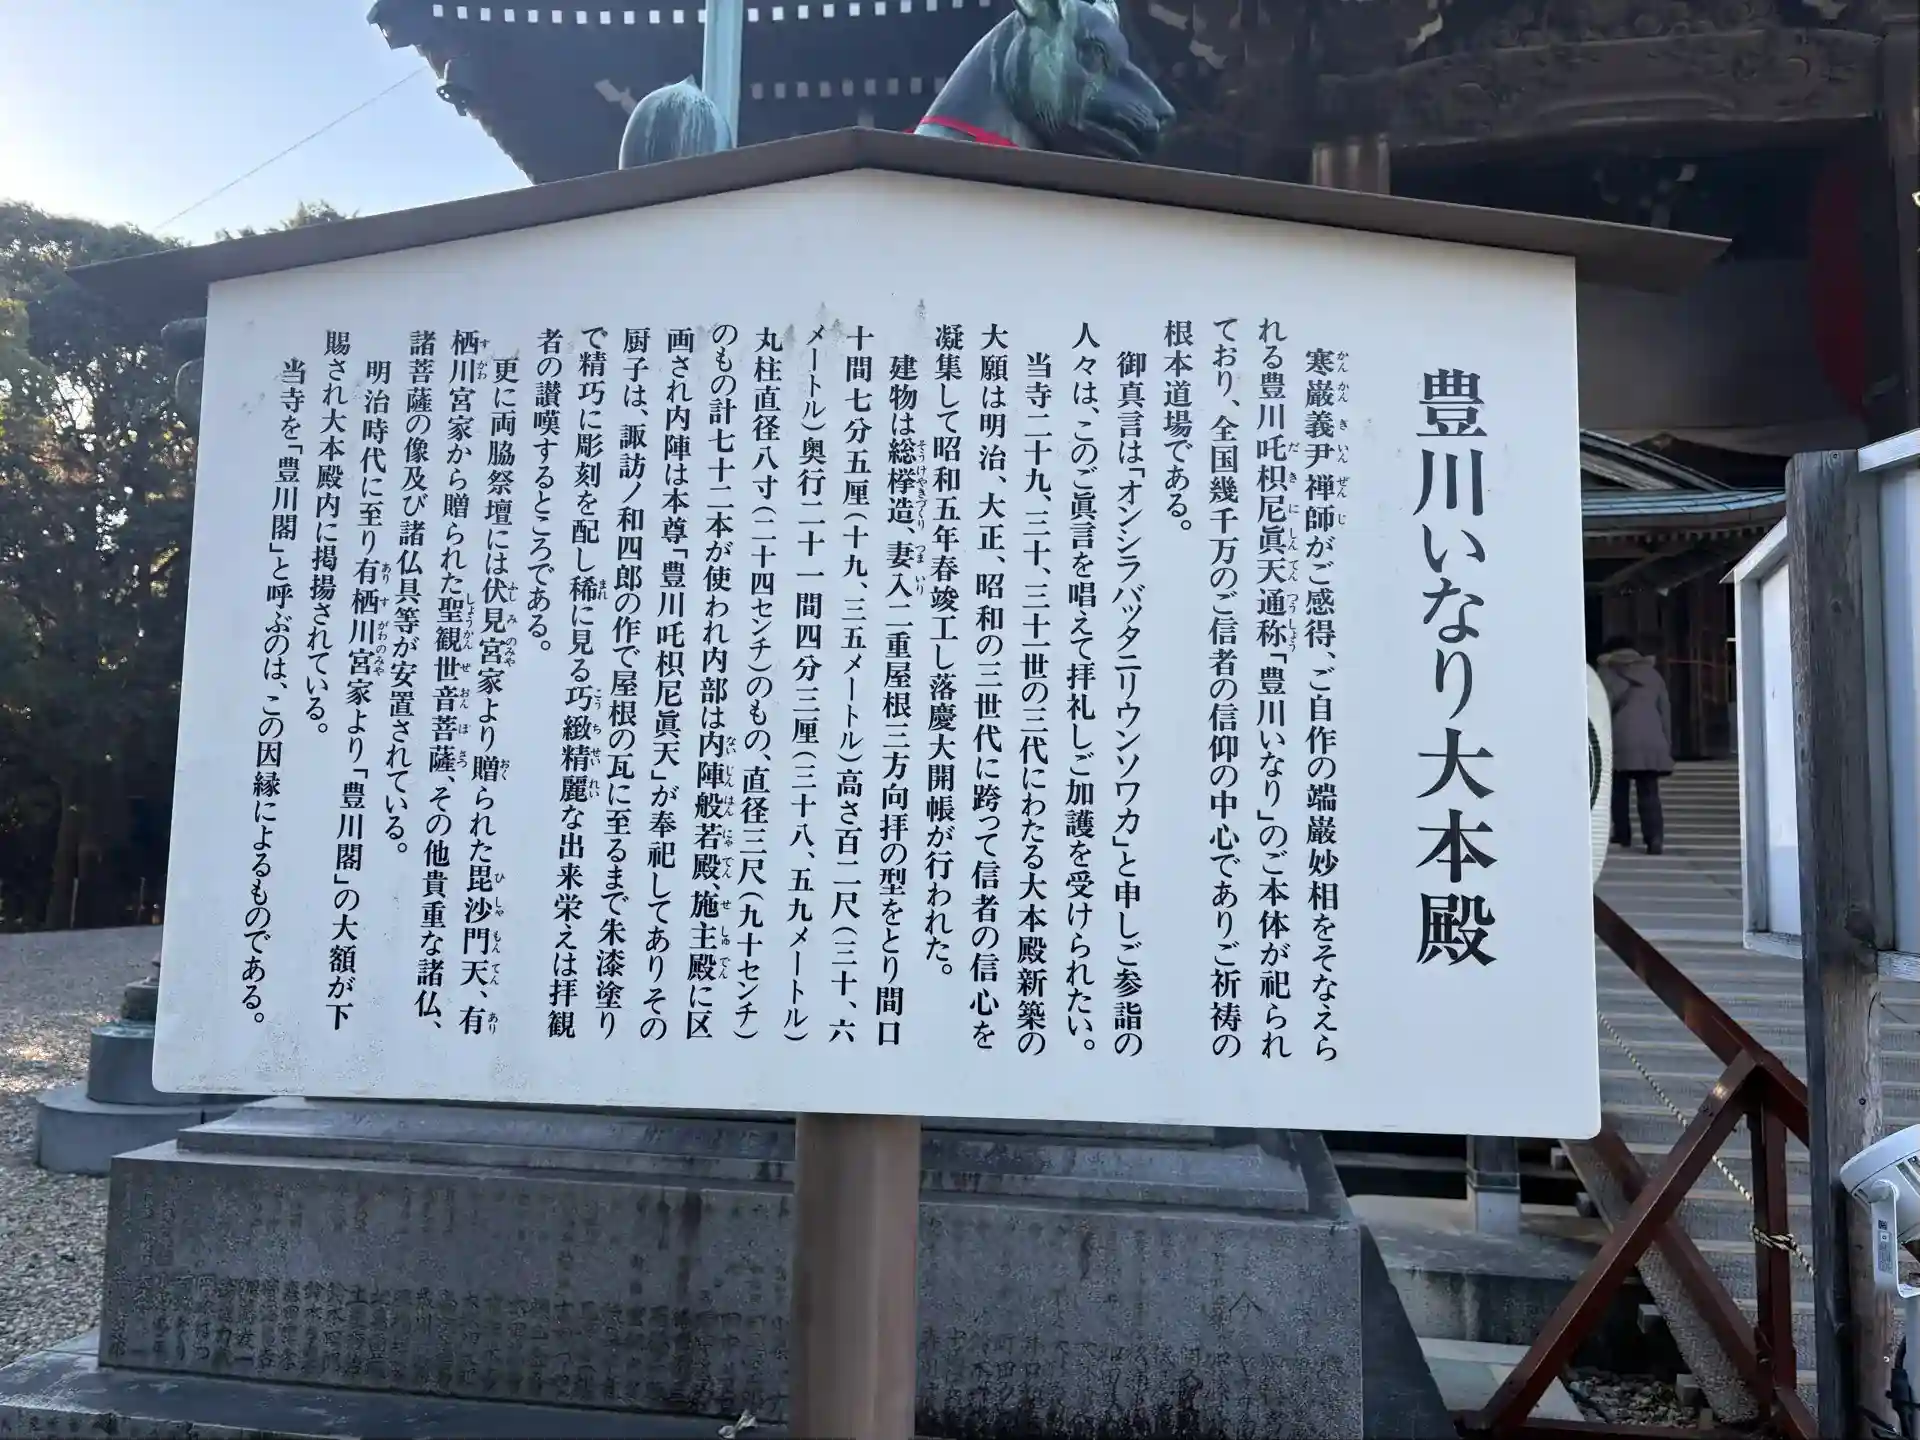 豊川いなり大本殿
寒巌義尹禅師がご感得、ご自作の端厳妙相をそなえら
れる豊川吒枳尼眞天通称「豊川いなり」のご本体が祀られ
ており、全国幾千万のご信者の信仰の中心でありご祈祷の
根本道場である。
御真言は「オンシラバッタニリウンソワカ」と申しご参詣の
人々は、このご眞言を唱えて拝礼しご加護を受けられたい。
当寺二十九、三十、三十一世の三代にわたる大本殿新築の
大願は明治、大正、昭和の三世代に跨って信者の信心を
凝集して昭和五年春竣工し落慶大開帳が行われた。
建物は総欅造、妻入二重屋根三方向拝の型をとり間口
十間七分五厘(十九、三五メートル)高さ百二尺(三十、六
メートル)奥行二十一間四分三厘(三十八、五九メートル)
丸柱直径八寸(二十四センチ)のもの、直径三尺(九十センチ)
のもの計七十二本が使われ内部は内陣般若殿、施主殿に区
画され内陣は本尊「豊川吒枳尼眞天」が奉祀してありその
厨子は、諏訪ノ和四郎の作で屋根の瓦に至るまで朱漆塗り
で精巧に彫刻を配し稀に見る巧緻精麗な出来栄えは拝観
者の讃嘆するところである。
更に両脇祭壇には伏見宮家より贈られた毘沙門天、有
栖川宮家から贈られた聖観世音菩薩、その他貴重な諸仏、
諸菩薩の像及び諸仏具等が安置されている。
明治時代に至り有栖川宮家より「豊川閣」の大額が下
賜され大本殿内に掲揚されている。
当寺を「豊川閣」と呼ぶのは、この因縁によるものである。